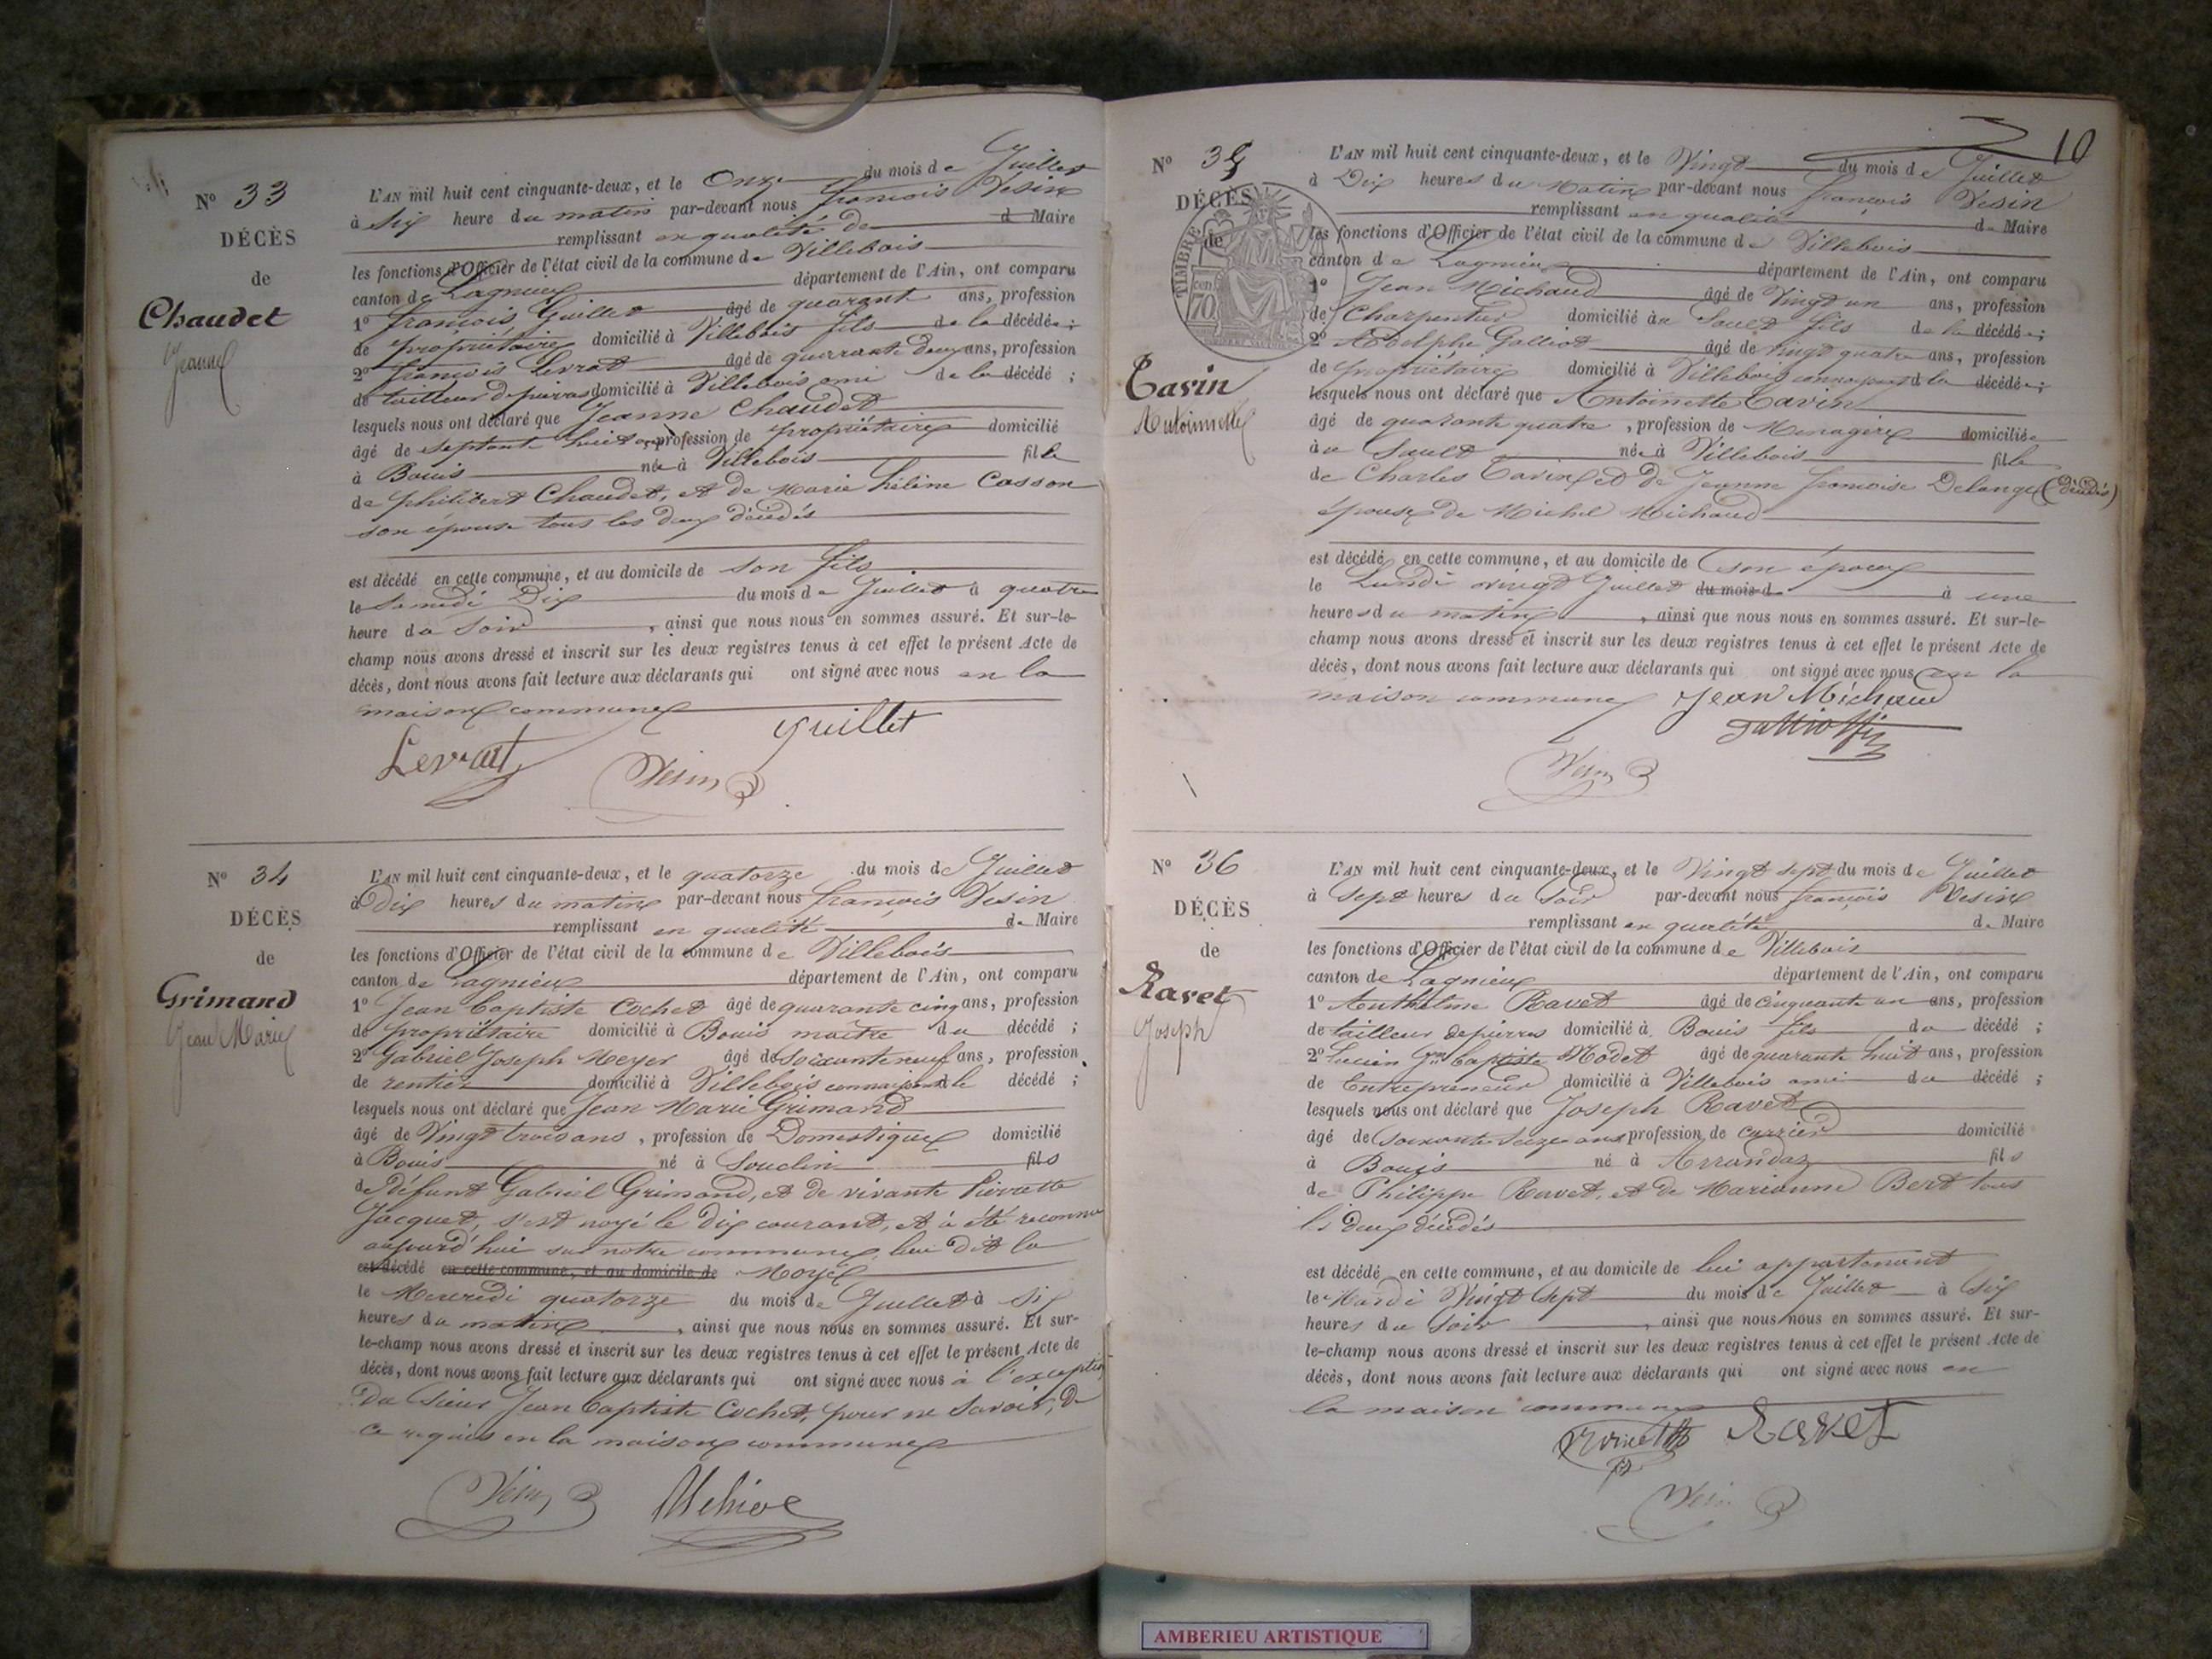 N° 33
DÉCÈS
de
Chaudet
Jeanne
L'AN mil huit cent cinquante-deux, et le Onze du mois de Juillet
à Six heure du matin par-devant nous françois Vesin
remplissant en qualité de d Maire
les fonctions d'Officier de l'état civil de la commune de Villebois
canton de Lagnieu département de l'Ain, ont comparu
1° françois Guillet âgé de quarant ans, profession
de propriétaire domicilié à Villebois fils de la décédée;
2° françois Levrat âgé de quarante deux ans, profession
de tailleur de pierres domicilié à Villebois ami de la décédé;
lesquels nous ont déclaré que Jeanne Chaudet
âgé de septante huit ans, profession de propriétaire domicilié
à Bouis née à Villebois fille
de philibert Chaudet, et de Marie héline Casson
son épouse tous les deux décédés
est décédé en cette commune, et au domicile de son fils
le Samedi Dix du mois de Juillet à quatre
heure du Soir, ainsi que nous nous en sommes assuré. Et sur-le-
champ nous avons dressé et inscrit sur les deux registres tenus à cet effet le présent Acte de
décès, dont nous avons fait lecture aux déclarants qui ont signé avec nous en la
maison commune
Levrat Vesin guillet
N° 34
DÉCÈS
de
Grimand
Jean Marie
L'AN mil huit cent cinquante-deux, et le quatorze du mois de Juillet
à Dix heures du matin par-devant nous françois Vesin
remplissant en qualité de Maire
les fonctions d'Officier de l'état civil de la commune de Villebois
canton de Lagnieu département de l'Ain, ont comparu
1° Jean Baptiste Cochet âgé de quarante cinq ans, profession
de propriétaire domicilié à Bouis maître du décédé;
2° Gabriel Joseph Meyer âgé de Soixante neuf ans, profession
de rentier domicilié à Villebois le décédé;
lesquels nous ont déclaré que Jean Marie Grimand
âgé de Vingt trois ans, profession de Domestique domicilié
à Bouis né à Souclin fils
de Défunt Gabriel Grimand, et de vivante Pierrette
Jacquet, s'est noyé le dix courant, et à été reconnu
aujourd'hui sur notre commune, lieu Dit la
est décédé en cette commune, et au domicile de
le Mercredi quatorze du mois de Juillet à Six
heures du matin, ainsi que nous nous en sommes assuré. Et sur-
le-champ nous avons dressé et inscrit sur les deux registres tenus à cet effet le présent Acte de
décès, dont nous avons fait lecture aux déclarants qui ont signé avec nous à l'exception
Du Sieur Jean Baptiste Cochet, pour ne Savoir, De
ce requis en la maison commune
Vesin
N° 35
DÉCÈS
de
TIMBRE
70
Cavin
Antoinette
10
L'AN mil huit cent cinquante-deux, et le Vingt du mois de Juillet
à Dix heures du Matin par-devant nous françois Vesin
remplissant en qualité de Maire
les fonctions d'Officier de l'état civil de la commune de Villebois
canton de Lagnieu département de l'Ain, ont comparu
1° Jean Michaud âgé de Vingt un ans, profession
de Charpentier domicilié au Sault fils de la décédée;
2° Adolphe Galliot âgé de vingt quatre ans, profession
de propriétaire domicilié à Villebois la décédée;
lesquels nous ont déclaré que Antoinette Cavin
âgé de quarante quatre, profession de Menagère domiciliée
au Sault née à Villebois fille
de Charles Cavin et de Jeanne françoise Delange (décédés)
épouse de Michel Michaud
est décédé en cette commune, et au domicile de son époux
le Lundi vingt Juillet du mois d à une
heures du matin, ainsi que nous nous en sommes assuré. Et sur-le-
champ nous avons dressé et inscrit sur les deux registres tenus à cet effet le présent Acte de
décès, dont nous avons fait lecture aux déclarants qui ont signé avec nous en la
maison commune Jean Michaud
Vesin
N° 36
DÉCÈS
de
Ravet
Joseph
L'AN mil huit cent cinquante-deux, et le Vingt sept du mois de Juillet
à Sept heures du Soir par-devant nous françois Vesin
remplissant en qualité de Maire
les fonctions d'Officier de l'état civil de la commune de Villebois
canton de Lagnieu département de l'Ain, ont comparu
1° Anthelme Ravet âgé de Cinquante un ans, profession
de tailleur de pierres domicilié à Bouis fils du décédé;
2° Lucien Jn Baptiste Modet âgé de quarante huit ans, profession
de Entrepreneur domicilié à Villebois ami du décédé;
lesquels nous ont déclaré que Joseph Ravet
âgé de Soixante Seize ans profession de carrier domicilié
à Bouis né à Arrandaz fils
de Philippe Ravet, et de Marianne Bert tous
les deux décédés
est décédé en cette commune, et au domicile de lui appartenant
le Mardi Vingt Sept du mois de Juillet à Six
heures du Soir, ainsi que nous nous en sommes assuré. Et sur-
le-champ nous avons dressé et inscrit sur les deux registres tenus à cet effet le présent Acte de
décès, dont nous avons fait lecture aux déclarants qui ont signé avec nous en
la maison commune
Ravet
Vesin
AMBERIEU ARTISTIQUE